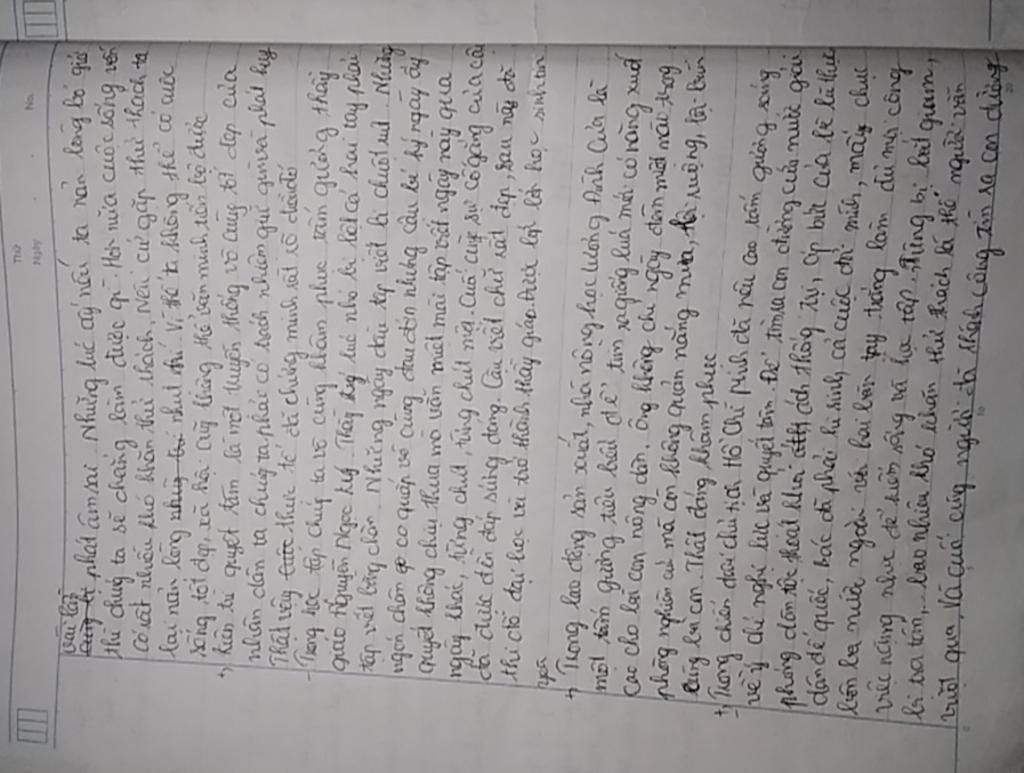 Thứ
Ngày
No.
hai lần
phát âm sai. Những lúc ấy nếu ta nản lòng bỏ giở
thì chúng ta sẽ chẳng làm được gì. Hơn nữa cuộc sống vốn
có rất nhiều khó khăn thử thách, nếu cứ gặp thử thách ta
lại nản lòng nhụt chí. Vì thế ta không thể có cuộc
sống tốt đẹp, xã hội cũng không thể văn minh tiến bộ được
+, kiên trì quyết tâm là một truyền thống vô cùng tốt đẹp của
nhân dân ta chúng ta phải có trách nhiệm giữ gìn và phát huy
Thật vậy thực tế đã chứng minh rất rõ điều đó
- Trong học tập chúng ta vô cùng khâm phục tấm gương thầy
giáo Nguyễn Ngọc Ký. Thầy Ký lúc nhỏ bị liệt cả hai tay phải
tập viết bằng chân. Những ngày đầu tập viết bị chuột rút. Những
ngón chân co quắp vô cùng đau đớn nhưng cậu bé ký ngày ấy
quyết không chịu thua mà vẫn miệt mài tập viết ngày này qua
ngày khác, từng chút, từng chút một. Cuối cùng sự cố gắng của cậu
đã được đền đáp xứng đáng. Cậu viết chữ rất đẹp, sau này đỗ
thi đỗ đại học và trở thành thầy giáo
+, Trong lao động sản xuất, nhà nông học Lương Đình Của là
một tấm gương tiêu biểu để tìm ra giống lúa mới có năng xuất
cao cho bà con nông dân. Ông không chỉ ngày đêm miệt mài trong
phòng nghiên cứu mà còn không quản nắng mưa, lội ruộng,
cùng bà con. Thật đáng khâm phục
+, Trong chiến đấu chủ tịch Hồ Chí Minh đã nêu cao tấm gương sáng
về ý chí nghị lực và quyết tâm. Để tìm ra con đường cứu nước giải
phóng dân tộc thoát khỏi ách thống trị, áp bức của bè lũ thực
dân đế quốc, bác đã phải hi sinh cả cuộc đời mình, mấy chục
năm bôn ba nước ngoài với hai bàn tay trắng làm đủ mọi công
việc nặng nhọc để kiếm sống và học tập. Từng bị bắt giam,
bị tra tấn, bao nhiêu khó khăn thử thách là thế người vẫn
vượt qua. Và cuối cùng người đã thành công tìm ra con đường